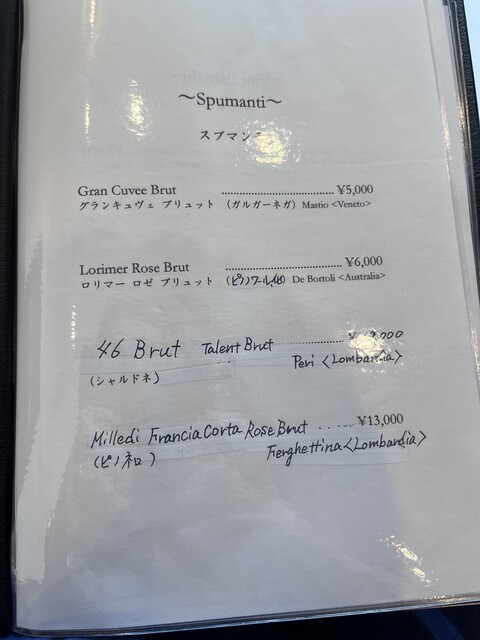 ～Spumanti～
スプマンテ
Gran Cuvee Brut ¥5,000
グランキュヴェ ブリュット (ガルガーネガ) Mastio <Veneto>
Lorimer Rose Brut ¥6,000
ロリマー ロゼ ブリュット (ピノノワール他) De Bortoli <Australia>
46 Brut Talent Brut
(シャルドネ) Peri <Lombardia>
Milledi FranciaCorta Rose Brut ¥13,000
(ピノ ネロ) Ferghettina <Lombardia>